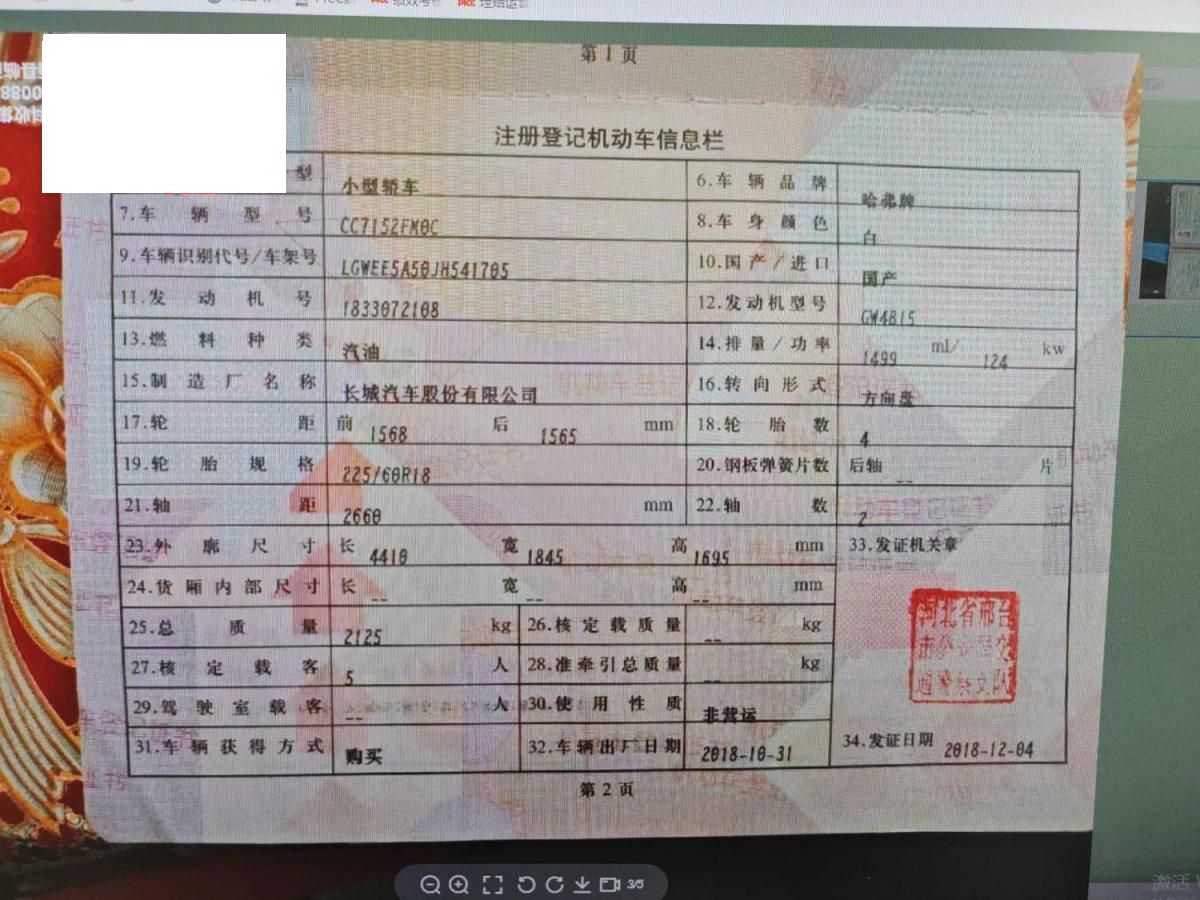 第1页
注册登记机动车信息栏
型 小型轿车 6.车辆品牌 哈弗牌
7.车辆型号 CC7152FM0C 8.车身颜色 白
9.车辆识别代号/车架号 LGWEE5A50JH541705 10.国产/进口 国产
11.发动机号 1833072108 12.发动机型号 GW4B15
13.燃料种类 汽油 14.排量/功率 1499 ml/ 124 kw
15.制造厂名称 长城汽车股份有限公司 16.转向形式 方向盘
17.轮距 前 1568 后 1565 mm 18.轮胎数 4
19.轮胎规格 225/60R18 20.钢板弹簧片数 后轴 -- 片
21.轴距 2660 mm 22.轴数 2
23.外廓尺寸 长 4410 宽 1845 高 1695 mm 33.发证机关章
24.货厢内部尺寸 长 -- 宽 -- 高 -- mm
25.总质量 2125 kg 26.核定载质量 -- kg
河北省邢台
市公安局交
通警察支队
27.核定载客 5 人 28.准牵引总质量 -- kg
29.驾驶室载客 -- 人 30.使用性质 非营运
31.车辆获得方式 购买 32.车辆出厂日期 2018-10-31 34.发证日期 2018-12-04
第2页
3/5
激活